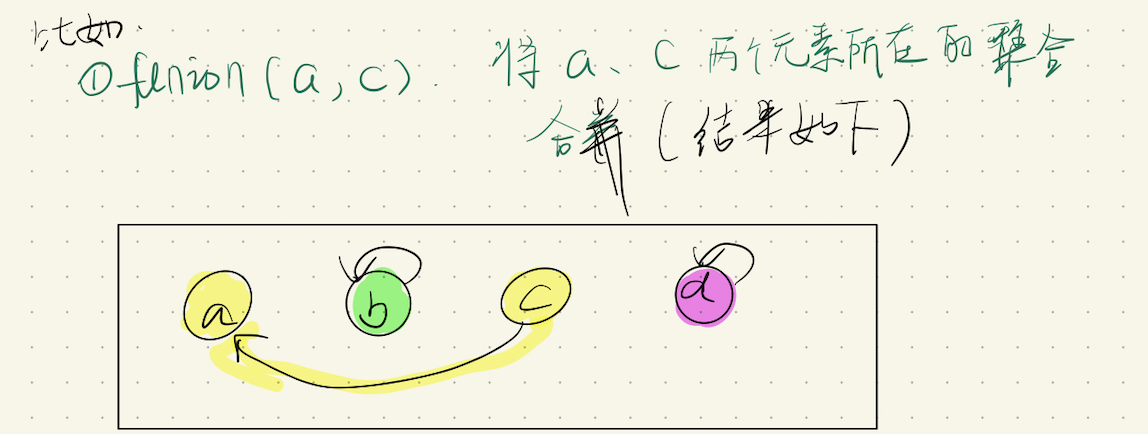 比如.
①funion(a,c). 将 a、c 两个元素所在的集合
合并(结果如下)
a b c d